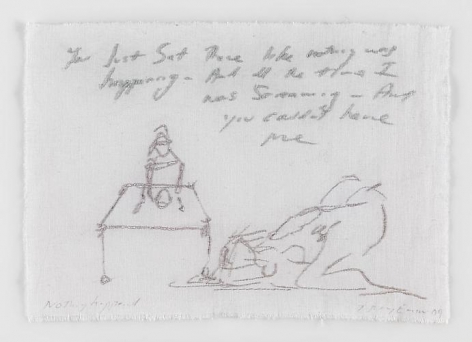 You Just Sat There like nothing was
happening - And all the time I
was Screaming - And
you couldn't hear
me